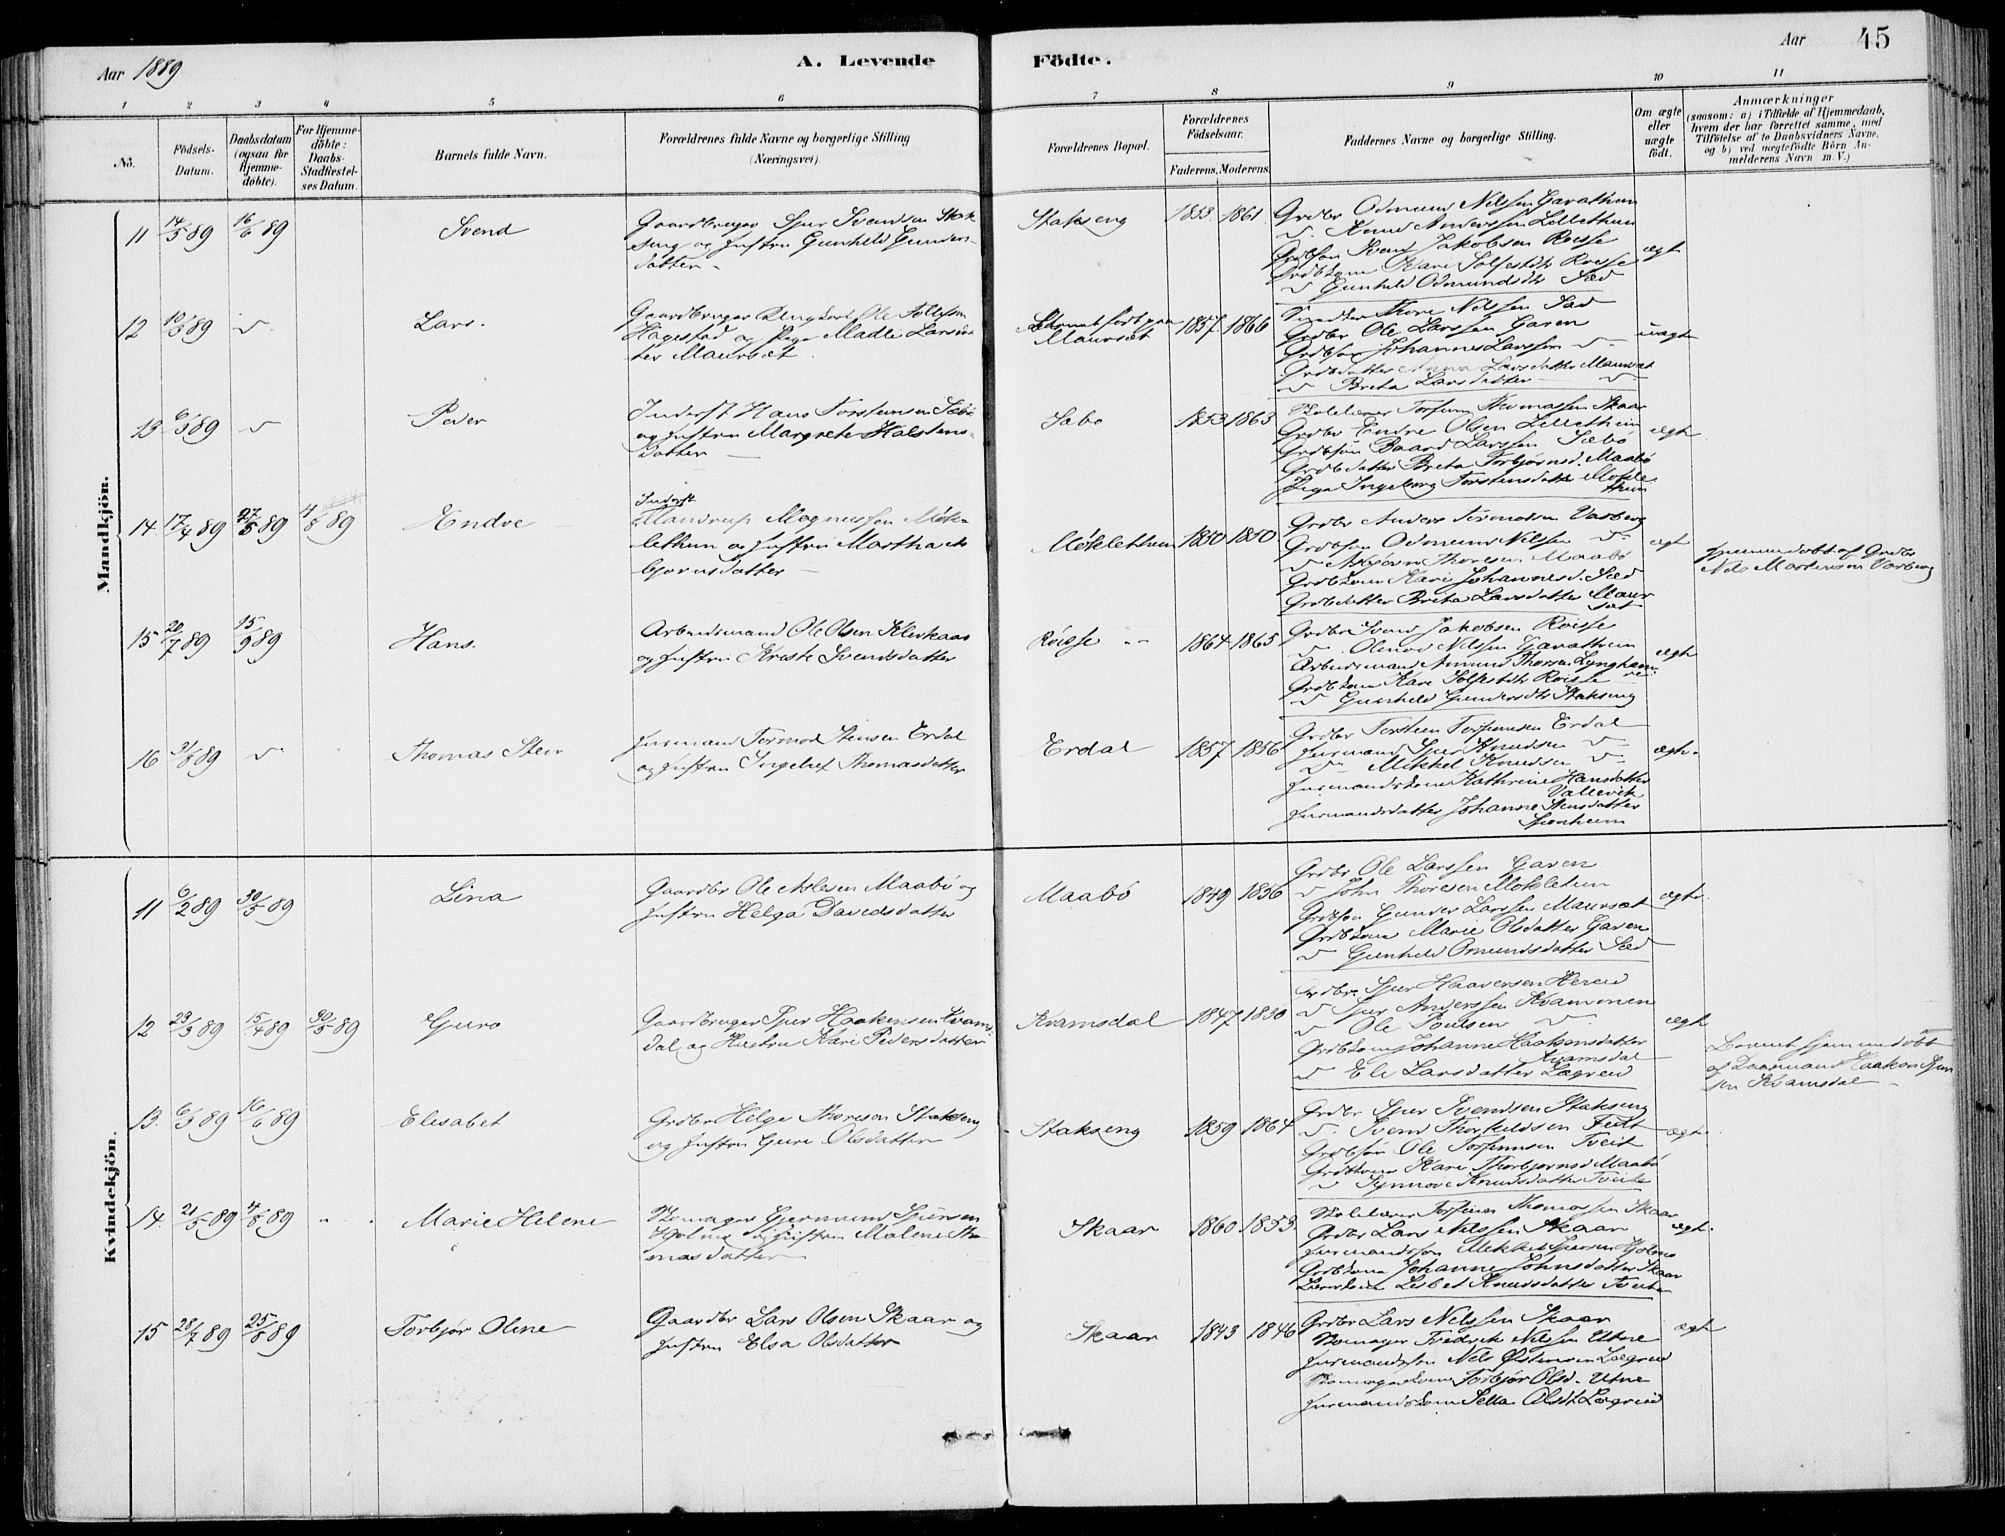 Aar 1889
A. Levende
Födte.
Aar
45
1 2 3 4 5 6 7 8 9 10 11
No.
Födsels-
Datum.
Daabsdatum
(ogsaa for
hjemme-
döbte).
For Hjemme-
döbte:
Daabs-
Stadfæstel-
ses Datum.
Barnets fulde Navn.
Forældrenes fulde Navne og borgerlige Stilling
(Næringsvei)
Forældrenes Bopæl.
Forældrenes
Födselsaar.
Faderens. Moderens.
Faddernes Navne og borgerlige Stilling.
Om ægte
eller
uægte
födt.
Anmærkninger
(saasom: a) i Tilfælde af Hjemmedaab,
hvem der har forrettet samme, med
Tilföielse af to Daabsvidners Navne,
og b) ved uægtefödte Börn An-
melderens Navn m. V.)
Mandkjön.
11 14/5 89 16/6 89
Svend
Gaardbruger Sjur Svendsen Stak
seng og Hustru Gunhild Gunders-
datter
Stakseng
1853. 1861
Grdbr Odmund Nilsen Garathun
Knud Anderssen Lillethun
Grdbsøn Svend Jakobsen Roisse
Grdbkone Kari Solfestdtr Roisse
Gunhild Odmundsdtr Sæd
ægt
12 10/5 89
Lars.
Gaardbruger Ungkarl Ole Tollefsen
Hagestad og Pige Madli Larsdat
ter Maursæt
Barnet født paa
Maursæt
1857 1866
Thore Nilsen Sæd
Grdbr Ole Larssen Garen
Grdbsøn Johannes Larssen
Grdbdatter Anna Larsdatter Maursæt
Brita Larsdatter
uægte
13 6/5 89
Peder
Inderst Hans Torsteinsen Sæbø
og Hustru Margrete Halstens-
datter
Sæbo
1853 1863
Skolelærer Torfinn Thomassen Skaar
Grdbr Endre Olsen Lillethun
Grdbsøn Baard Larssen Sæbö
Grdbdatter Brita Torbjørnsd. Maabö
Pige Ingeborg Torstensdatter Mokle
thun
ægte
14. 17/4 89 27/5 89 4/8 89
Endre
Inderst
Mandrup Magnussen Møk
lethun og Hustru Martha As
bjørnsdatter
Møklethun
1850 1850.
Grdbr Anders Tormodsen Varberg
Grdbsøn Odmund Nilsen
Asbjørn Thoresen Maabö
Grdbkone Kari Johannesd. Sæd
Grdbdatter Brita Larsdatter Maur
sæt
ægt
Hjemmedøbt af Grdbr
Nils Mortensen Varberg
15 20/7 89 15/9 89
Hans.
Arbeidsmand Ole Olsen Klevkaas
og Hustru Kirste Svendsdatter
Röisse
1864 1865
Grdbr Svend Jakobsen Roisse
Olenos Nilssen Garathun
Arbeidsmand Amund Thorsen Lyngham
Grdbkone Kari Solfestdtr Roisse
Gunhild Gundersdtr Stakseng
ægte
16 31/8 89
Thomas Sten
Husmand Tormod Stensen Erdal
og Hustru Ingeleif Thomasdatter
Erdal
1857 1856
Grdbr Torstein Torfinnsen Erdal
Husmand Sjur Knudsen
Mikkel Knudsen
Husmandskone Kathrine Hansdatter
Vallevik
Husmandsdatter Johanne Stensdatter
Simonheim
ægte.
Kvindekjön.
11 6/2 89 30/5 89
Lina
Gaardbr Ole Atlesen Maabö og
Hustru Helga Davidsdatter
Maabö
1849 1856
Grdbr Ole Larssen Garen
John Thoresen Moklethun
Grdbsøn Gunder Larssen Maursæt
Grdbkone Marie Olsdatter Garen
Gunhild Omundsdatter Sæd
ægte.
12 23/3 89 15/4 89 30/5 89
Guro
Gaardbruger Sjur Haakensen Kvams
dal og Hustru Kari Pedersdatter
Kvamsdal
1847 1850
Grdbr. Sjur Haaversen Hereid
Sjur Anderssen Kvammen
Ole Poulsen
Grdbkone Johanne Haakonsdatter
Kvamsdal
Eli Larsdatter Lægreid
ægt
Barnet hjemmedöbt
af Haakon Sjur
sen Kvamsdal
13. 6/5 89 16/6 89
Elisabet
Grdbr Helge Thoresen Stakseng
og Hustru Guri Olsdatter
Stakseng
1859 1864
Grdbr Sjur Svendsen Stakseng
Svend Thorkeldssen Feet
Grdbsøn Ole Torfinnsen Tveit
Grdbkone Kari Thorbjørnsd Maabö
Synnove Knudsdatter Tveite
ægte
14. 21/5 89 4/8 89
Marie Helene
Skomager Gjermund Sjursen
Holme og Hustru Malene Tho
masdatter
Skaar
1860 1853.
Skolelærer Torfinn Thomassen Skaar
Grdbr Lars Nilssen Skaar
Husmandssøn Mikkel Sjursen Holme
Grdbkone Johanne Johnsdatter Skaar
Lisbet Knudsdatter Tveite
ægt.
15 28/7 89 25/8 89
Torbjør Oline
Gaardbr Lars Olsen Skaar og
Hustru Elsa Olsdatter
Skaar
1843 1846
Grdbr Lars Nilssen Skaar
Skomager Fredrik Nilsen Utne
Husmandssøn Nils Østensen Lægreid
Skomagerkone Torbjør Olsd. Utne
Husmandskone Sella Olsdt Lægreid
ægt